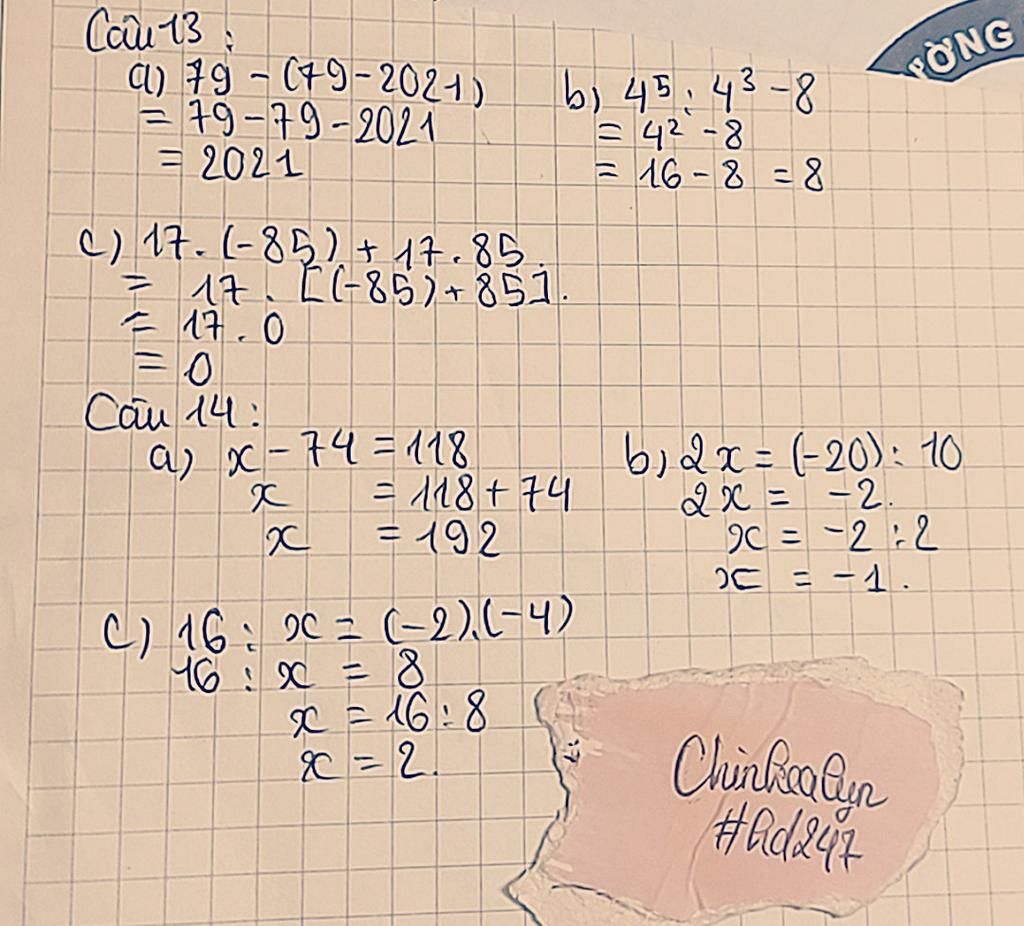 Câu 13:
a) 79 - (79 - 2021)
= 79 - 79 - 2021
= 2021
b) 4⁵ : 4³ - 8
= 4² - 8
= 16 - 8 = 8
c) 17 . (-85) + 17 . 85.
= 17 . [(-85) + 85].
= 17 . 0
= 0
Câu 14:
a) x - 74 = 118
x = 118 + 74
x = 192
b) 2x = (-20) : 10
2x = -2.
x = -2 : 2
x = -1.
c) 16 : x = (-2).(-4)
16 : x = 8
x = 16 : 8
x = 2.
#Ad247
ƯỜNG